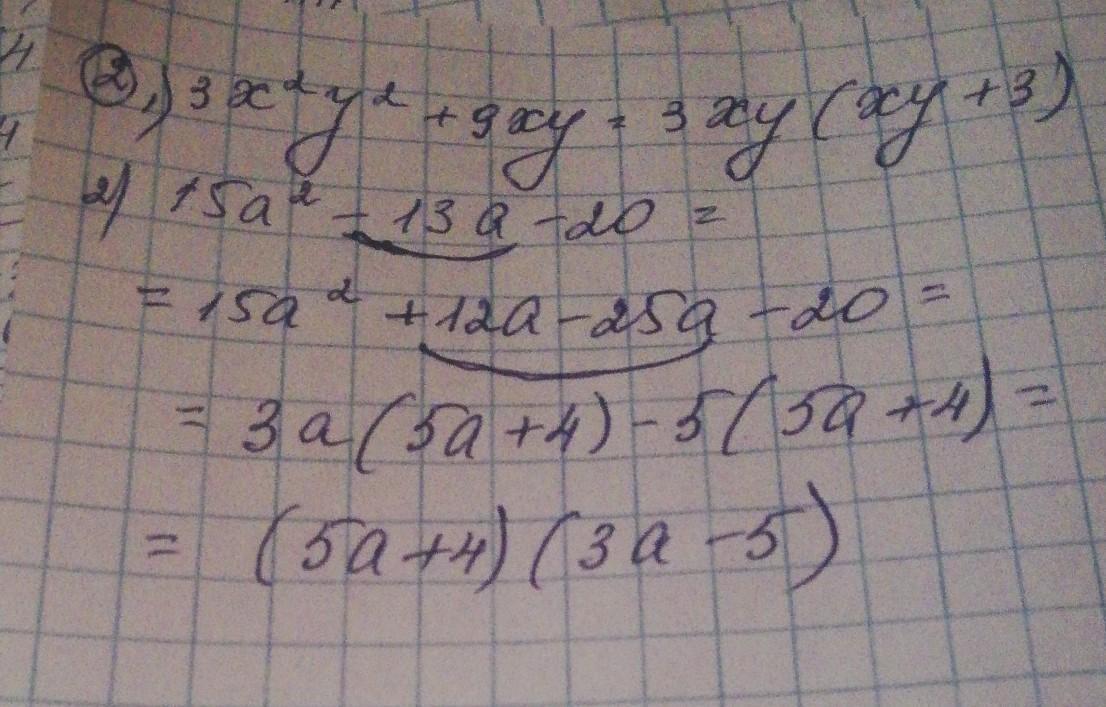 ② 1) 3x²y² + 9xy = 3xy(xy + 3)
2) 15a² - 13a - 20 =
= 15a² + 12a - 25a - 20 =
= 3a(5a + 4) - 5(5a + 4) =
= (5a + 4)(3a - 5)